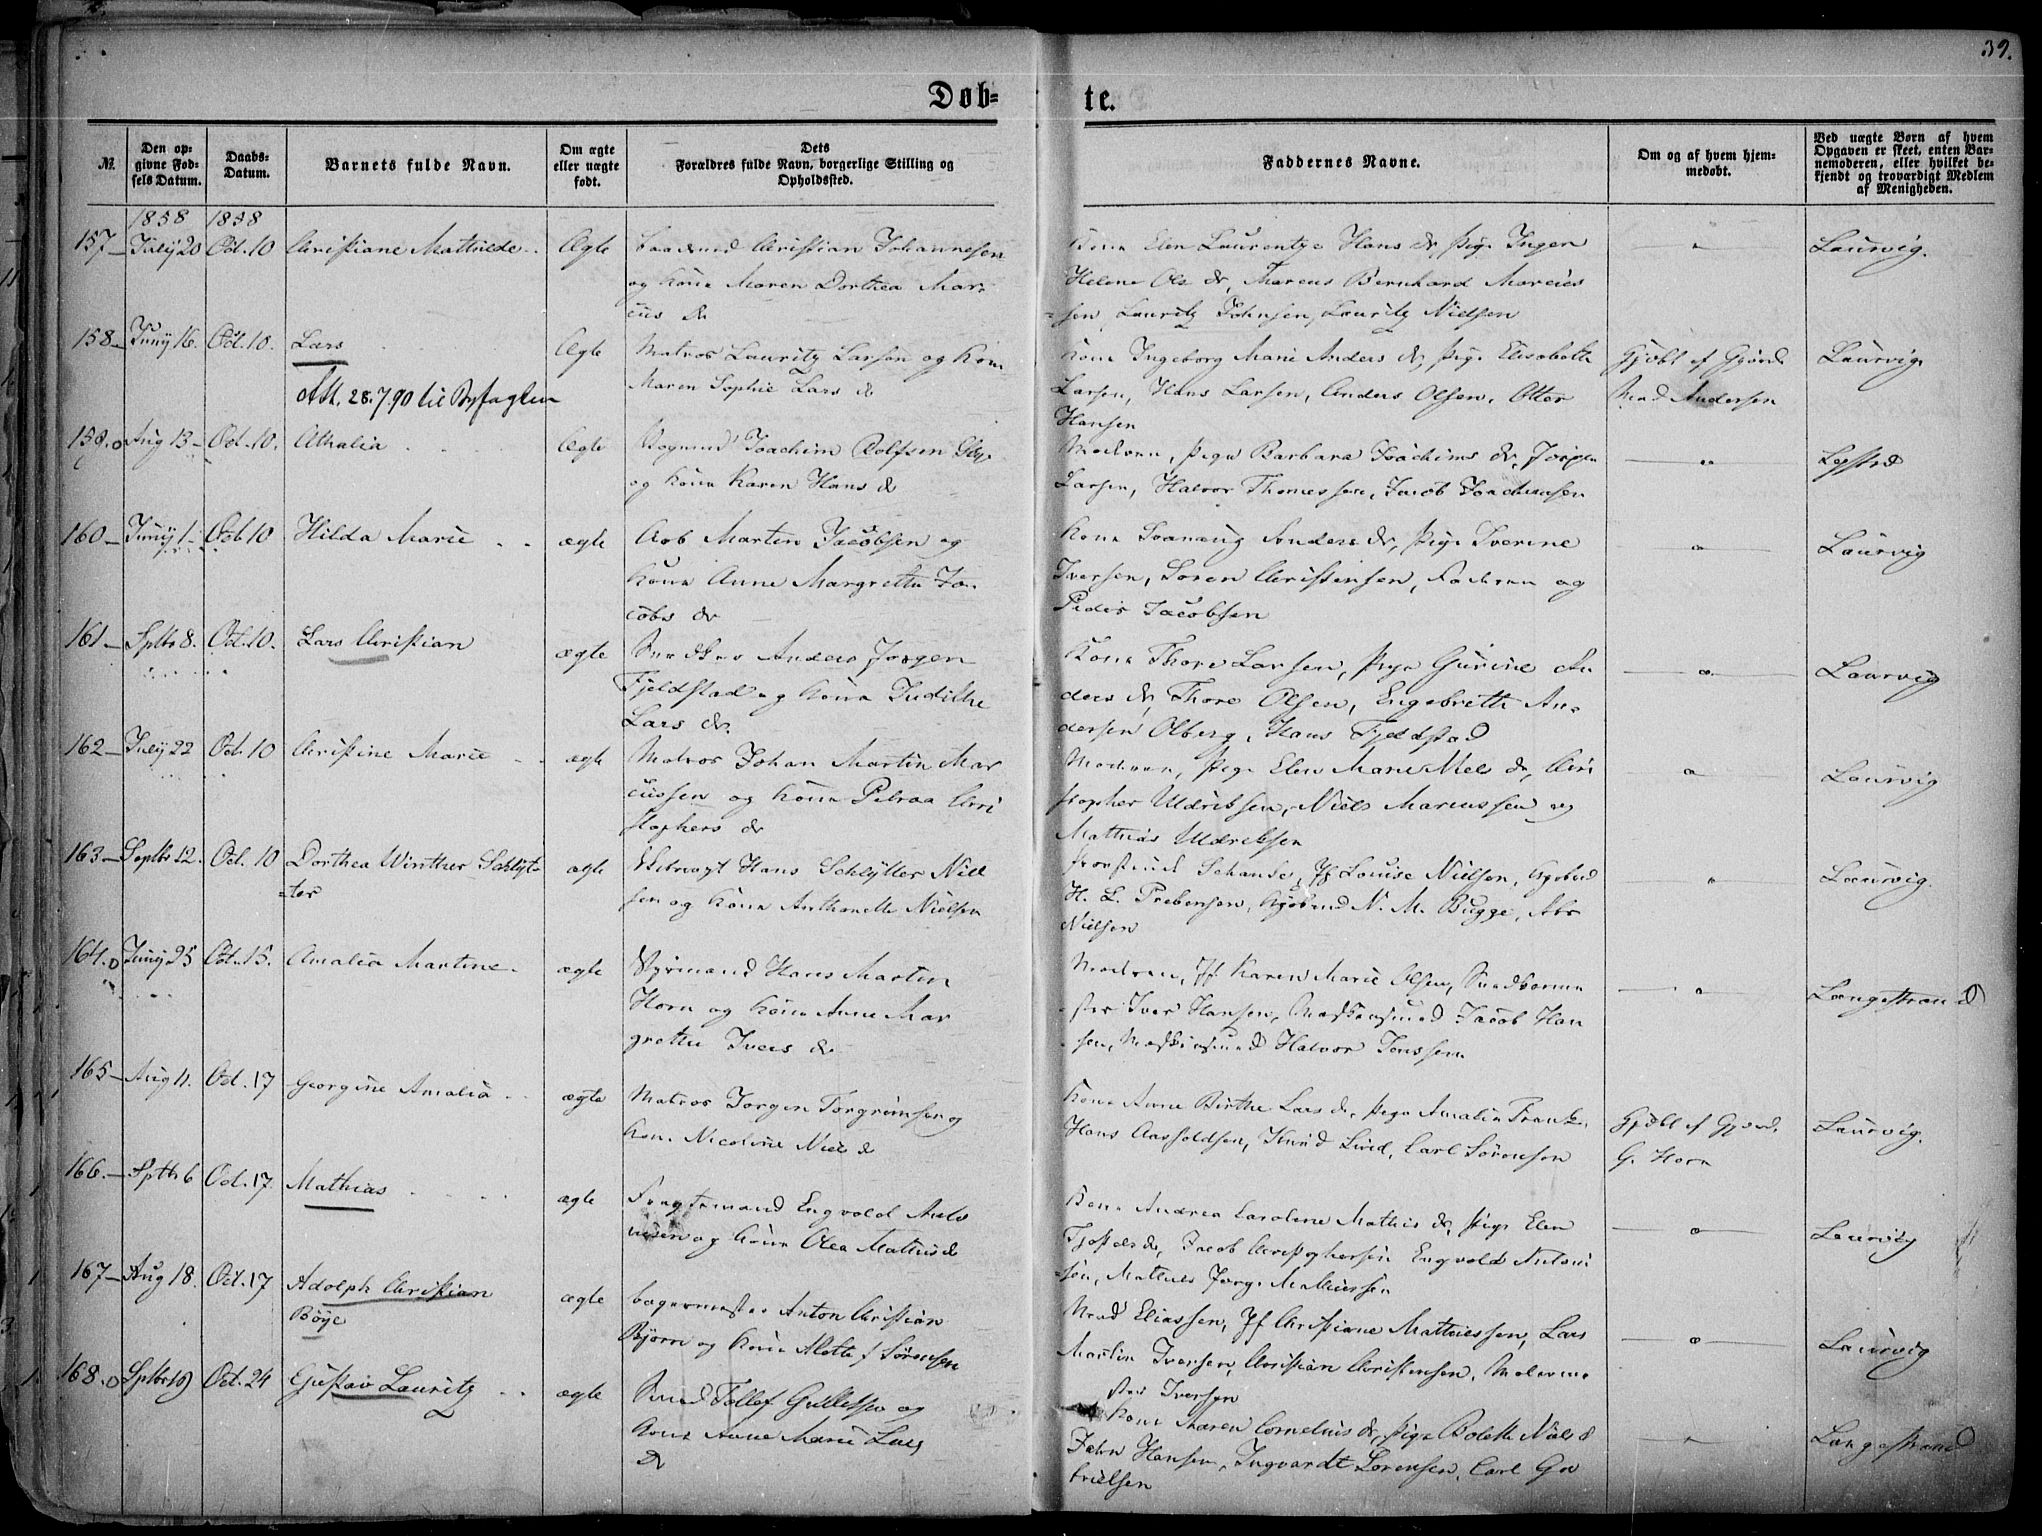 39.
Døb-
te.
№.
Den op-
givne Fød-
sels Datum.
Daabs-
Datum.
Barnets fulde Navn.
Om ægte
eller uægte
født.
Dets
Forældres fulde Navn, borgerlige Stilling og
Opholdssted.
Faddernes Navne.
Om og af hvem hjem-
medøbt.
Ved uægte Børn af hvem
Opgaven er skeet, enten Bar-
nemoderen, eller hvilket be-
kjendt og troværdigt Medlem
af Menigheden.
1858 1858
157 July 20 Oct. 10 Christiane Mathilde Ægte Christian Johannesen
og Kone Maren Dorthea Mar-
cus dr
Kone Elen Laurentze Hans dr, Pige Inger
Helene Ols dr, Marcus Bernhard Marcus
=sen, Lauritz Johnsen, Lauritz Nielsen
Laurvig.
158 Juny 16. Oct. 10. Lars Ægte Matros Lauritz Larsen og Kone
Maren Sophie Lars dr
Att. 28.7.90 til Byfogden
Kone Ingeborg Marie Anders dr, Pige Elisabeth
Larsen, Hans Larsen, Anders Olsen, Otter
Hansen
Gjøbt af Gjordm
Mad Andersen
Laurvig
159. Aug 13 Oct. 10. Athalia Ægte Joachim Rolfsen
og Kone Karen Hans dr
Modren, Pige Barbara Joachims dr, Jørgen
Larsen, Halvor Thomessen, Jacob Joachimsen
160 Juny 1 Oct 10 Hilda Marie ægte Arb Martin Jacobsen og
Kone Anne Margrethe Ja-
cobs dr
Kone Svanaug Anders dr, Pige Iverine
Iversen, Søren Christensen, Faderen og
Peder Jacobsen
Laurvig
161 Sptbr 8. Oct. 10. Lars Christian ægte Snedker Anders Jørgen
Fjeldstad og Kone Judithe
Lars dr.
Kone Thore Larsen, Pige Gurine An
ders dr, Thore Olsen, Engebreth An-
dersen Olberg, Hans Fjeldstad
Laurvig
162 July 22 Oct. 10 Christine Marie ægte Matros Johan Martin Mar
cussen og Kone Petrea Chri
stophers dr
Modren, Pige Elen Marie Nels dr, Chri
stopher Uldriksen, Niels Marcussen og
Mathias Uldriksen
Laurvig
163 Septbr 12. Oct. 10 Dorthea Winther Schlyt-
=ter ægte Hans Schlytter Niel
sen og Kone Anthonette Nielsen
Schanke, Jf Louise Nielsen, Kjøbmd
H. L. Prebensen, Kjøbmd N. M. Bugge, Abr
Nielsen
Laurvig.
164. Juny 25 Oct. 15. Amalia Martine ægte Styrmand Hans Martin
Horn og Kone Anne Mar
grethe Ivers dr
Modren, Jf Karen Marie Olsen,
Iver Hansen, Jacob Han
sen, Halvor Jenssen
Langestrand
165 Aug 11. Oct. 17 Georgine Amalia ægte Matros Jørgen Torgrimsen og
Kone Nicoline Niels d
Kone Anne Birthe Lars dr, Pige Amalia Frantz,
Hans Aasoldsen, Knud Lund, Carl Sørensen
Gjøbt af Gjord.
G. Horn
Laurvig.
166. Sptbr 6 Oct. 17. Mathias ægte Fragtemand Engvold Anto
niesen og Kone Olea Mathis d
Kone Andrea Caroline Mathis dr, Pige Elen
Jacob Christophersen Engvold Antoni
sen, Mathies Jørge Mathiessen
Laurvig
167 Aug 18. Oct. 17 Adolph Christian
Böye ægte Bagermester Anton Christian
Bjørn og Kone Alette f Sørensen
Mad Eliassen, Jf Christiane Mathiessen, Lars
Martin Iversen, Christian Christensen, Malerme
ster Iversen
Laurvig
168. Sptbr 19 Oct. 24 Gustav Lauritz ægte Smed Tollef Gullessen og
Kone Anne Marie Lars
Dr
Kone Maren Cornelius dr, Pige Bolette Niels d
John Hansen, Ingvardt Sorensen, Carl Ga
brielsen
Langestrand